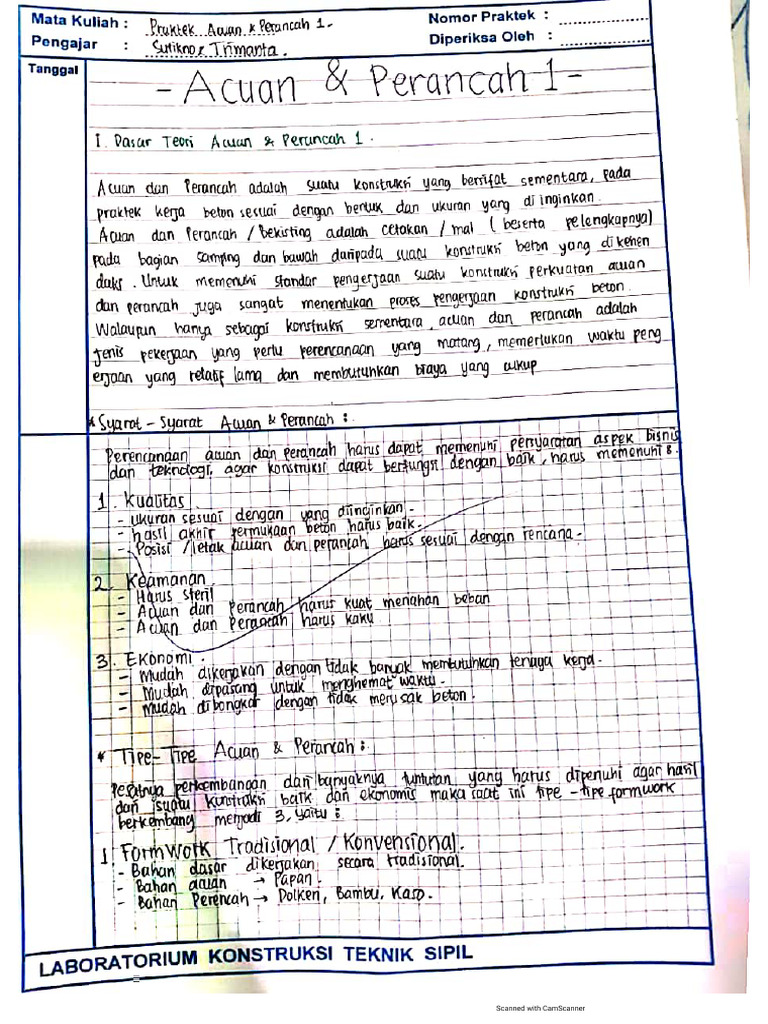 Mata Kuliah : Praktek Acuan & Perancah 1.
Nomor Praktek : ....................
Pengajar : Sutikno & Trimanta.
Diperiksa Oleh : ....................
Tanggal
- Acuan & Perancah 1 -
I. Dasar Teori Acuan & Perancah 1.
Acuan dan Perancah adalah suatu konstruksi yang bersifat sementara, pada
praktek kerja beton sesuai dengan bentuk dan ukuran yang di inginkan.
Acuan dan Perancah / Bekisting adalah cetakan / mal ( beserta pelengkapnya)
pada bagian samping dan bawah daripada suatu konstruksi beton yang di kehen
daki. Untuk memenuhi standar pengerjaan suatu konstruksi perkuatan acuan
dan perancah juga sangat menentukan proses pengerjaan konstruksi beton.
Walaupun hanya sebagai konstruksi sementara, acuan dan perancah adalah
jenis pekerjaan yang perlu perencanaan yang matang, memerlukan waktu peng
erjaan yang relatif lama dan membutuhkan biaya yang cukup
* Syarat - Syarat Acuan & Perancah :
Perencanaan acuan dan perancah harus dapat memenuhi persyaratan aspek bisnis
dan teknologi, agar konstruksi dapat berfungsi dengan baik, harus memenuhi :
1. Kualitas
- Ukuran sesuai dengan yang diinginkan.
- hasil akhir permukaan beton harus baik.
- Posisi / letak acuan dan perancah harus sesuai dengan rencana.
2. Keamanan
- Harus steril
- Acuan dan perancah harus kuat menahan beban
- Acuan dan perancah harus kaku
3. Ekonomi.
- Mudah dikerjakan dengan tidak banyak membutuhkan tenaga kerja.
- Mudah dipasang untuk menghemat waktu.
- Mudah dibongkar dengan tidak merusak beton.
* Tipe-Tipe Acuan & Perancah :
Pesatnya perkembangan dan banyaknya tuntutan yang harus dipenuhi agar hasil
dari suatu konstruksi baik dan ekonomis maka saat ini tipe - tipe formwork
berkembang menjadi 3, yaitu :
1. FormWork Tradisional / Konvensional.
- Bahan dasar dikerjakan secara tradisional.
- Bahan acuan → Papan.
- Bahan Perencah → Dolken, Bambu, Kaso.
LABORATORIUM KONSTRUKSI TEKNIK SIPIL
Scanned with CamScanner